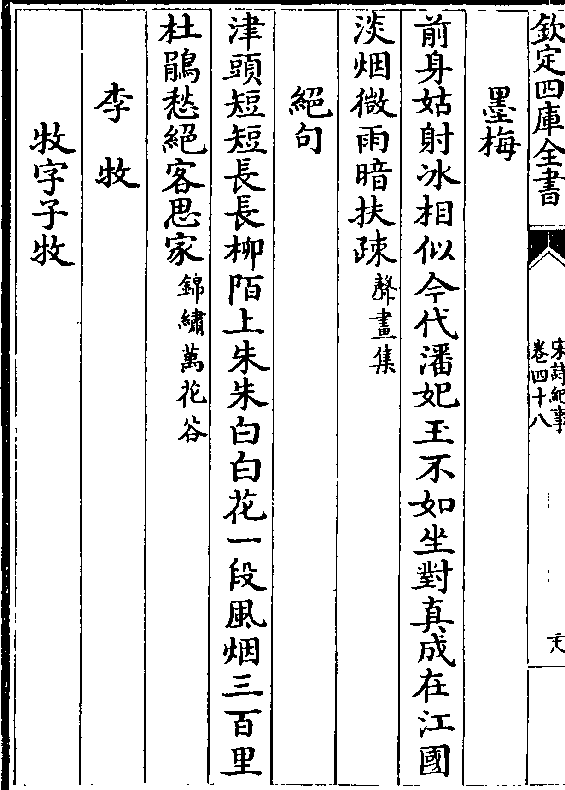 欽定四庫全書
宋詩紀事
卷四十八
墨梅
前身姑射冰相似今代潘妃王不如坐對真成在江國
淡烟微雨暗扶疎聲畫集
絕句
津頭短短長長柳陌上朱朱白白花一段風烟三百里
杜鵑愁絕客思家錦繡萬花谷
李牧
牧字子牧